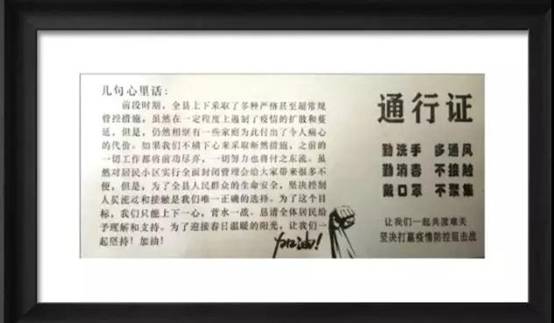 几句心里话：
前段时期，全县上下采取了多种严格甚至超常规
管控措施，虽然在一定程度上遏制了疫情的扩散和蔓
延，但是，仍然相继有一些家庭为此付出了令人痛心
的代价。如果我们不横下心来采取断然措施，之前的
一切工作都将前功尽弃，一切努力也将付之东流。虽
然对居民小区实行全面封闭管理会给大家带来很多不
便，但是，为了全县人民群众的生命安全，坚决控制
人员流动和接触是我们唯一正确的选择。为了这个目
标，我们只能上下一心，背水一战。恳请全体居民给
予理解和支持。为了迎接春日温暖的阳光，让我们一
起坚持！加油！
加油！
通行证
勤洗手 多通风
勤消毒 不接触
戴口罩 不聚集
让我们一起共渡难关
坚决打赢疫情防控阻击战